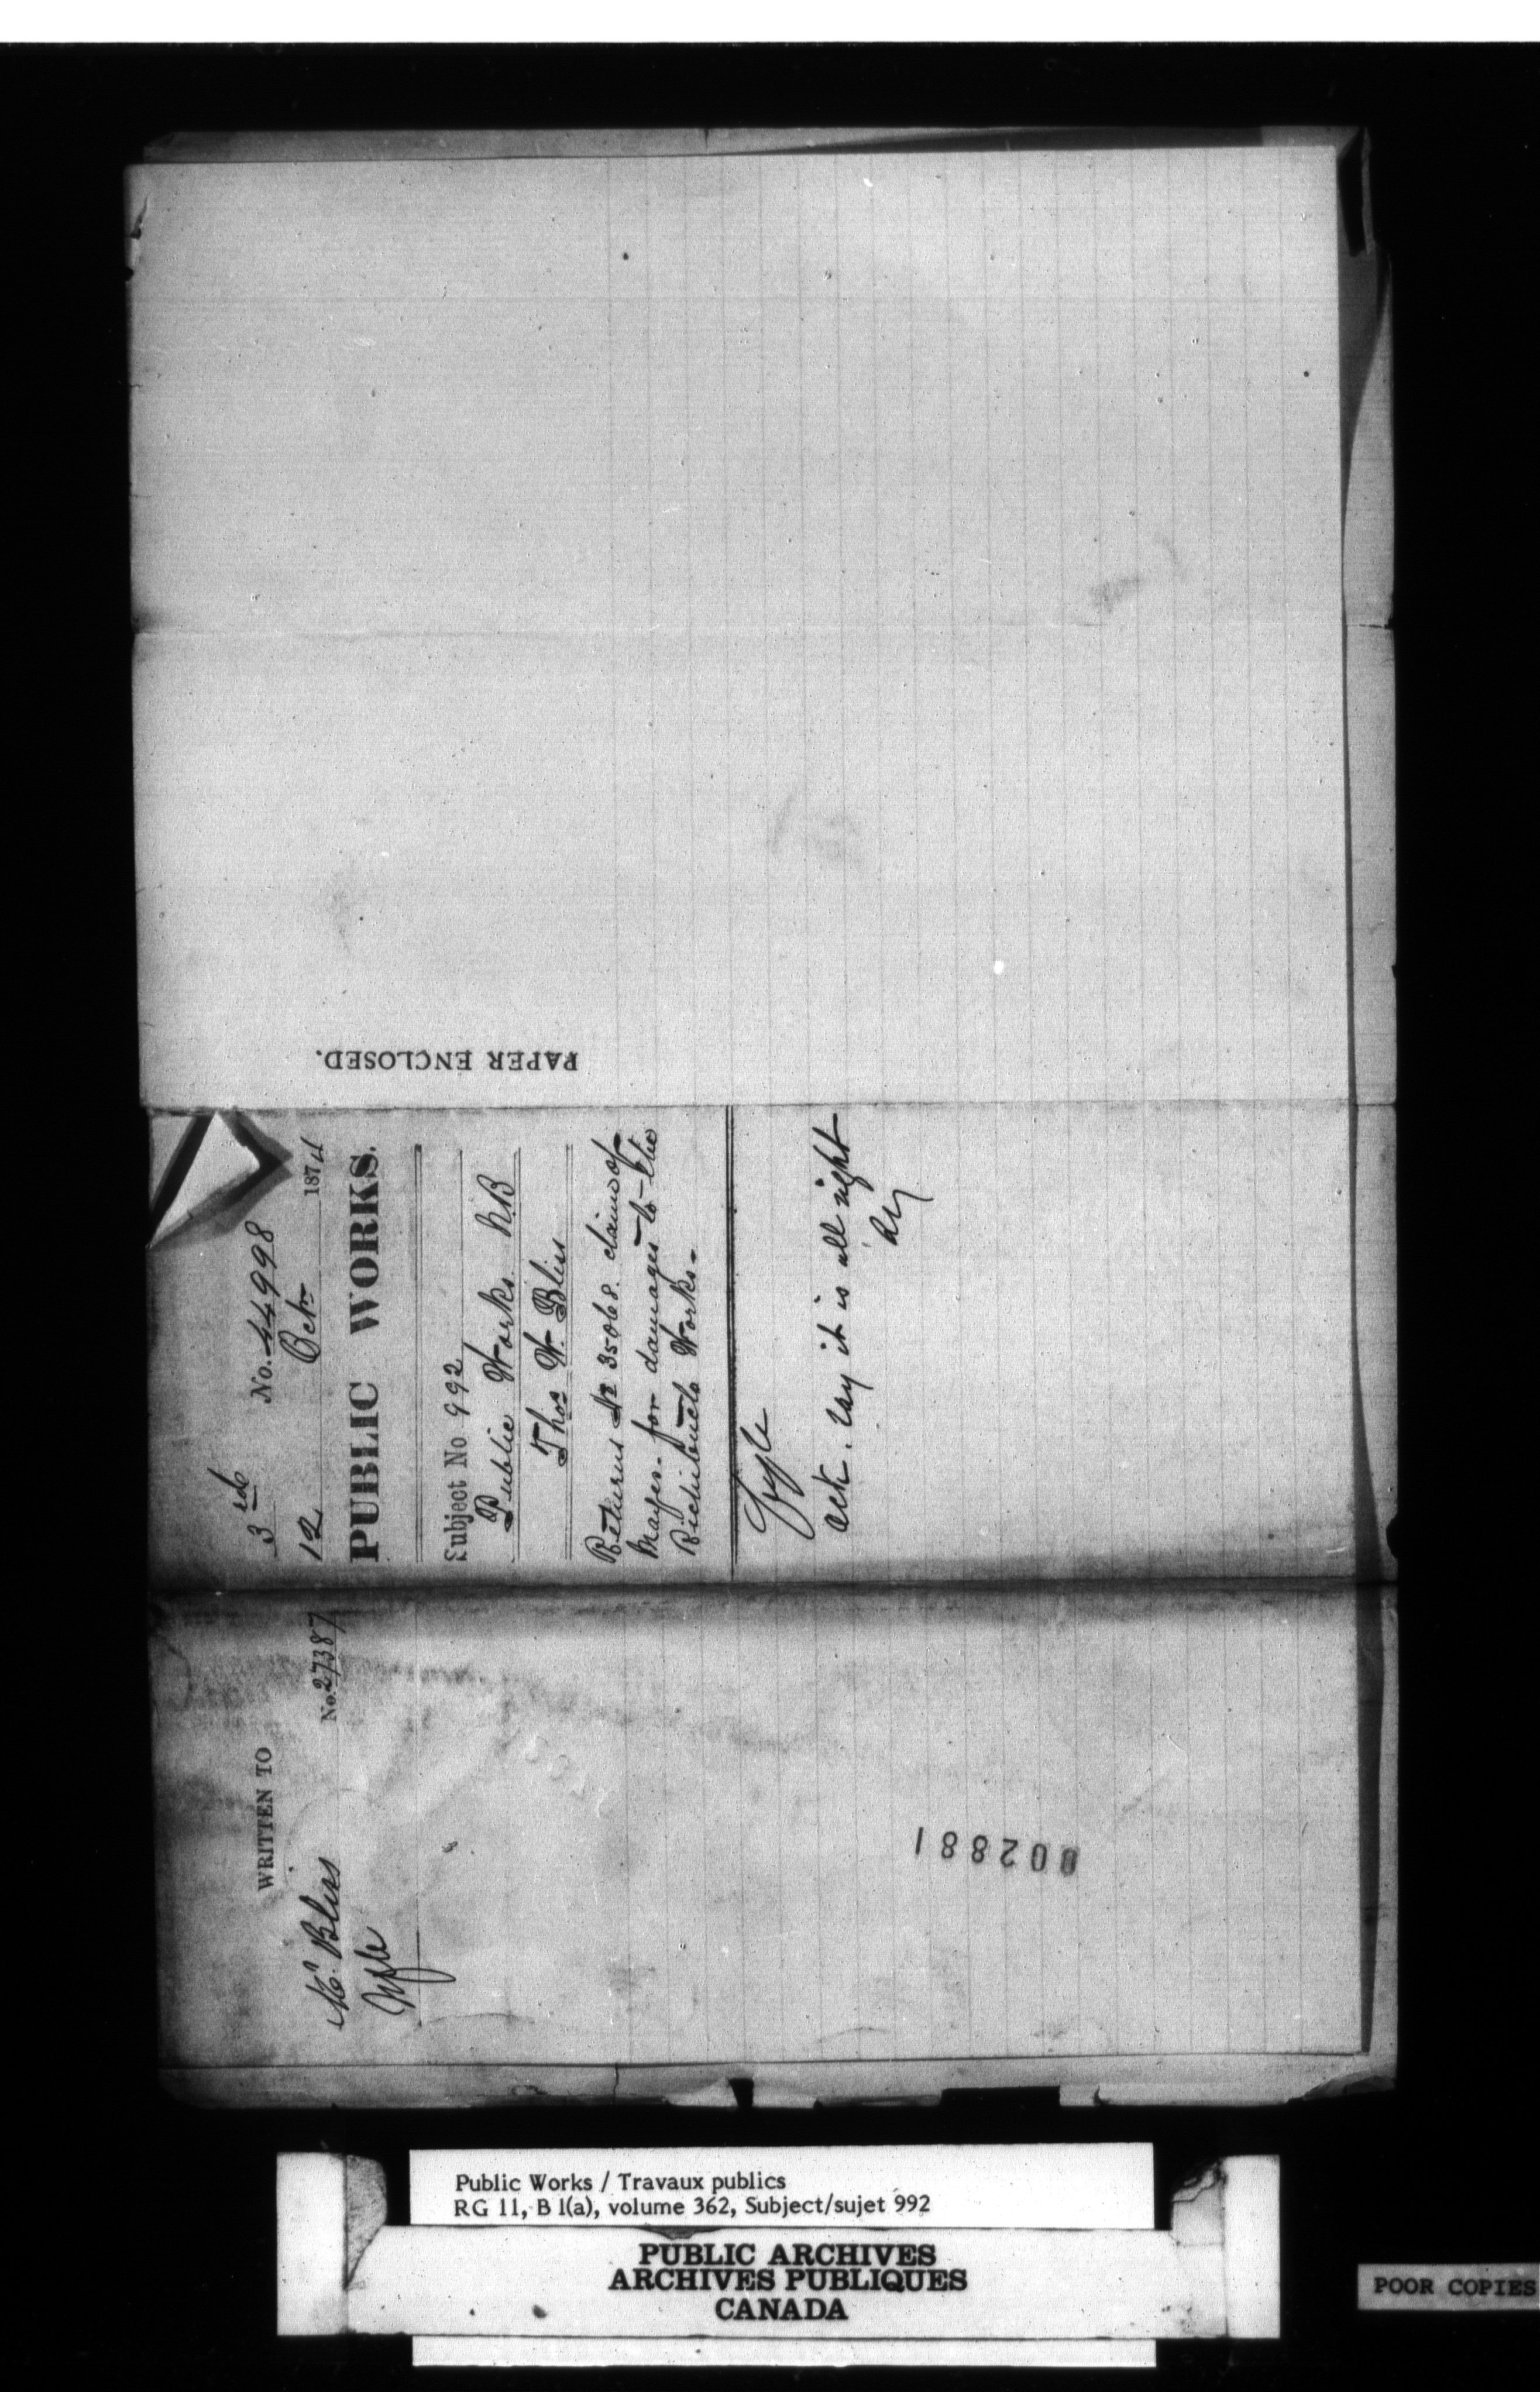 PAPER ENCLOSED.
3rd No. 44998
12 Octr 1874
PUBLIC WORKS.
Subject No 992
Public Works N.B
Thos W. Bliss
Returns No 35068. claim of
for damages to the
Richibucto Works.
ack. say it is all right
WRITTEN TO
No. 27387
Mr. Bliss
002881
Public Works / Travaux publics
RG 11, B 1(a), volume 362, Subject/sujet 992
PUBLIC ARCHIVES
ARCHIVES PUBLIQUES
CANADA
POOR COPIES